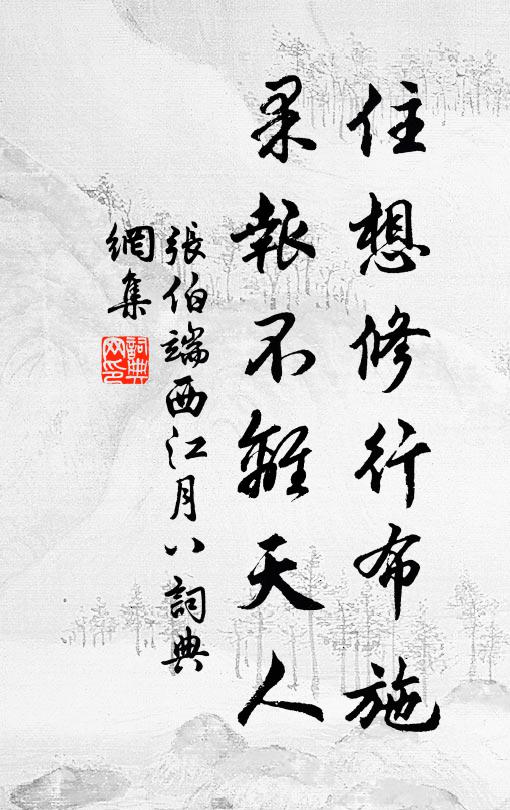 住想修行布施
果報不離天人
張伯端西江月八詞典
網集
詞典網印